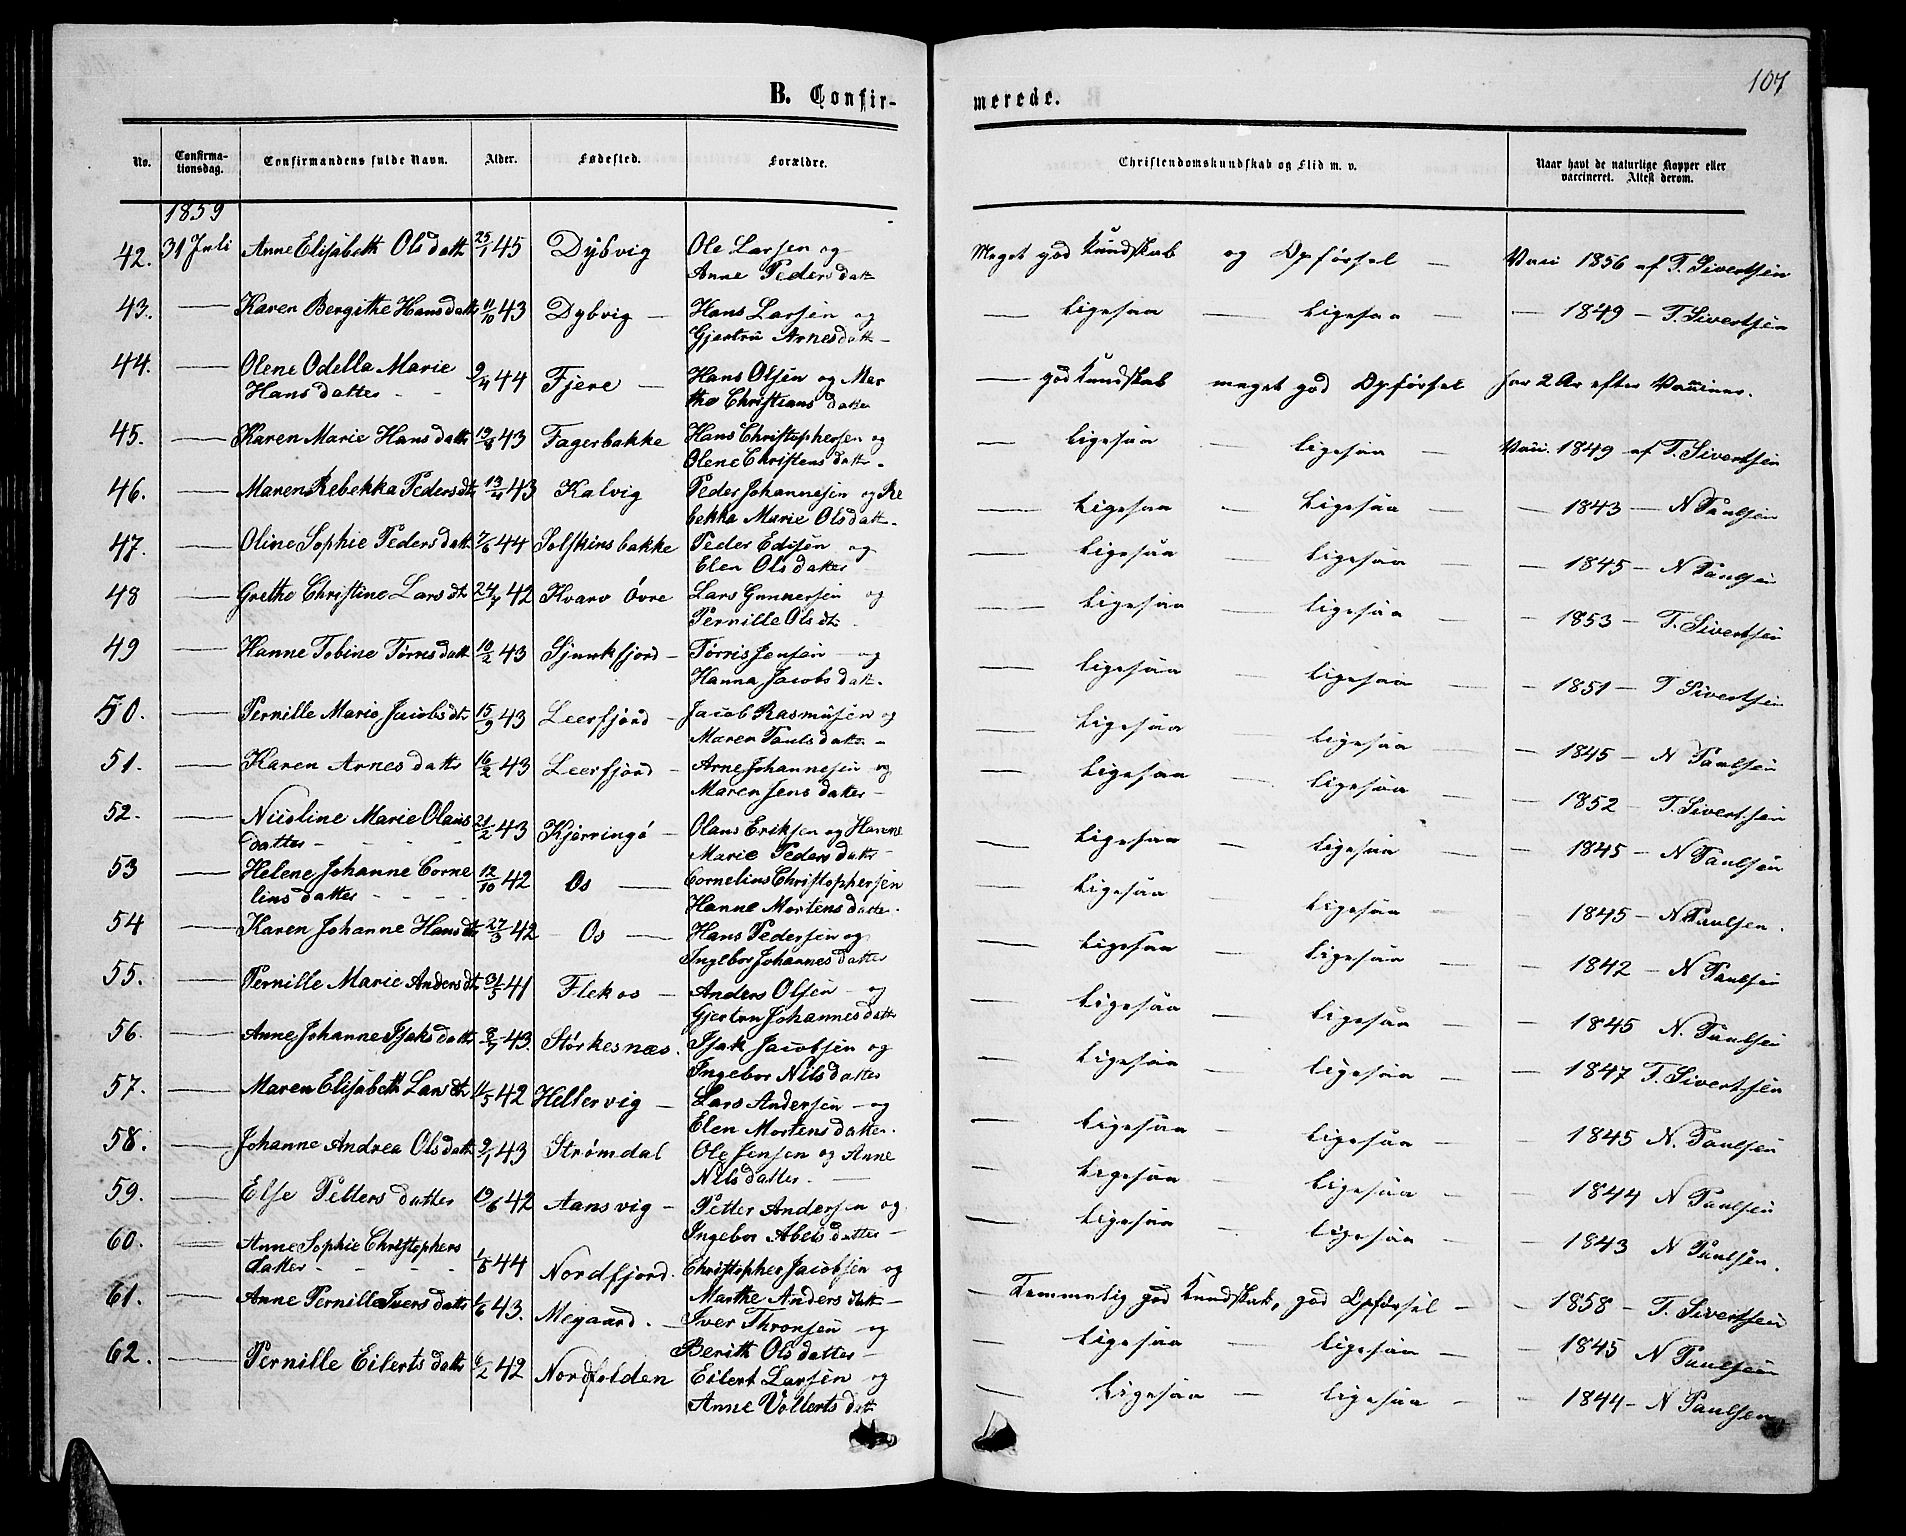 107
B. Confir-
merede.
No.
Confirma-
tionsdag.
Confirmandens fulde Navn.
Alder.
Fødested.
Forældre.
Christendomskundskab og Flid m. v.
Naar havt de naturlige Kopper eller
vaccineret. Attest derom.
1859
42. 31 Juli Anne Elisabeth Olsdatt 25/1 45 Dybvig Ole Larsen og
Anne Pedersdatt
Meget god Kundskab og Opførsel — Vacc 1856 af T. Sivertsen
43. — Karen Bergithe Hansdatt 11/10 43 Dybvig — Hans Larsen og
Gjertru Arnesdatt —
— Ligesaa — Ligesaa — — 1849 — T. Sivertsen
44. — Olene Odella Marie 9/4 44 Fjere — Hans Olsen og Mar
Hansdatter - - the Christiansdatter
— god Kundskab meget god Opførsel har 2 Ar efter Vaccines.
45. — Karen Marie Hansdatt 43 Fagerbakke Hans Christophersen og
Olene Christensdatter.
— Ligesaa — Ligesaa — Vacc. 1849 af T. Sivertsen
46. — Maren Rebekka Pedersdt 13/4 43 Kalvig Peder Johannesen og Re
bekka Marie Olsdatt.
— Ligesaa — Ligesaa — — 1843 — N Paulsen
47. — Oline Sophie Pedersdatt 7/6 44 Solskinsbakke Peder Edisen og
Elen Olsdatter
— Ligesaa — Ligesaa — — 1845 — N Paulsen
48 — Grethe Christine Larsdt 24/7 42 Kvarv Øvre Lars Gunnersen og
Pernille Olsdt.
— Ligesaa — Ligesaa — — 1853 — T. Sivertsen
49 — Hanne Tobine Tørrisdatt 10/2 43 Sjunkfjord — Tørris Jensen — og
Hanna Jacobsdatt.
— Ligesaa — Ligesaa — — 1851 — T Sivertsen
50. — Pernille Marie Jacobsdt 15/9 43 Leerfjord — Jacob Rasmusen og
Maren Paulsdatter —
— Ligesaa — Ligesaa — — 1845 — N Paulsen
51. — Karen Arnesdatter 16/2 43 Leerfjord — Arne Johannesen og
Maren Jensdatter —
— Ligesaa — Ligesaa — — 1852 — T. Sivertsen
52. — Nicoline Marie Olaus 21/2 43 Kjerringø — Olaus Eriksen og Hanne
datter - - - Marie Pedersdatter
— Ligesaa — Ligesaa — — 1845 — N Paulsen
53 — Helene Johanne Corne 12/10 42 Os — Cornelius Christophersen
liusdatter - - - - Hanne Mortensdatter.
— Ligesaa — Ligesaa — — 1845 — N Paulsen.
54 — Karen Johanne Hansdt 27/3 42 — Os — Hans Pedersen og
Ingebor Johannesdatter
— Ligesaa — Ligesaa — — 1842 — N Paulsen
55. — Pernille Marie Andersdt 31/5 41 Flekos — Anders Olsen — og
Gjertru Johannesdatt
— Ligesaa — Ligesaa — — 1845 N. Paulsen
56. — Anne Johanne Isaksdatt 8/7 43. Størkesnæs. Isak Jacobsen og
Ingebor Nilsdatter
— Ligesaa — Ligesaa — — 1847 T. Sivertsen
57. — Maren Elisabeth Larsdt 11/5 42 Hellervig — Lars Andersen — og
Elen Mortensdatter.
— Ligesaa — Ligesaa — — 1845 N. Paulsen
58. — Johanne Andrea Olsdatt 9/1 43 Strømdal Ole Jensen og Anne
Nilsdatter. —
— Ligesaa — Ligesaa — — 1844 N Paulsen
59. — Else Pettersdatter 19/6 42 Aansvig — Petter Andersen og
Ingebor Abelsdatter —
— Ligesaa — Ligesaa — — 1843 N Paulsen.
60. — Anne Sophie Christophers 1/5 44 Nordfjord. Christopher Jacobsen og
datter - - - - Marthe Andersdatt —
— Temmelig god Kundskab, god Opførsel — — 1858 — T. Sivertsen
61. — Anne Pernille Iversdatt 1/6 43. Megaard. — Iver Thronsen og
Berith Olsdatter —
— Ligesaa — Ligesaa — — 1845 N Paulsen
62. — Pernille Eilertsdatt 6/2 42 Nordfolden Eilert Larsen og
Anne Vollertsdatt
— Ligesaa — Ligesaa — — 1844 — N Paulsen